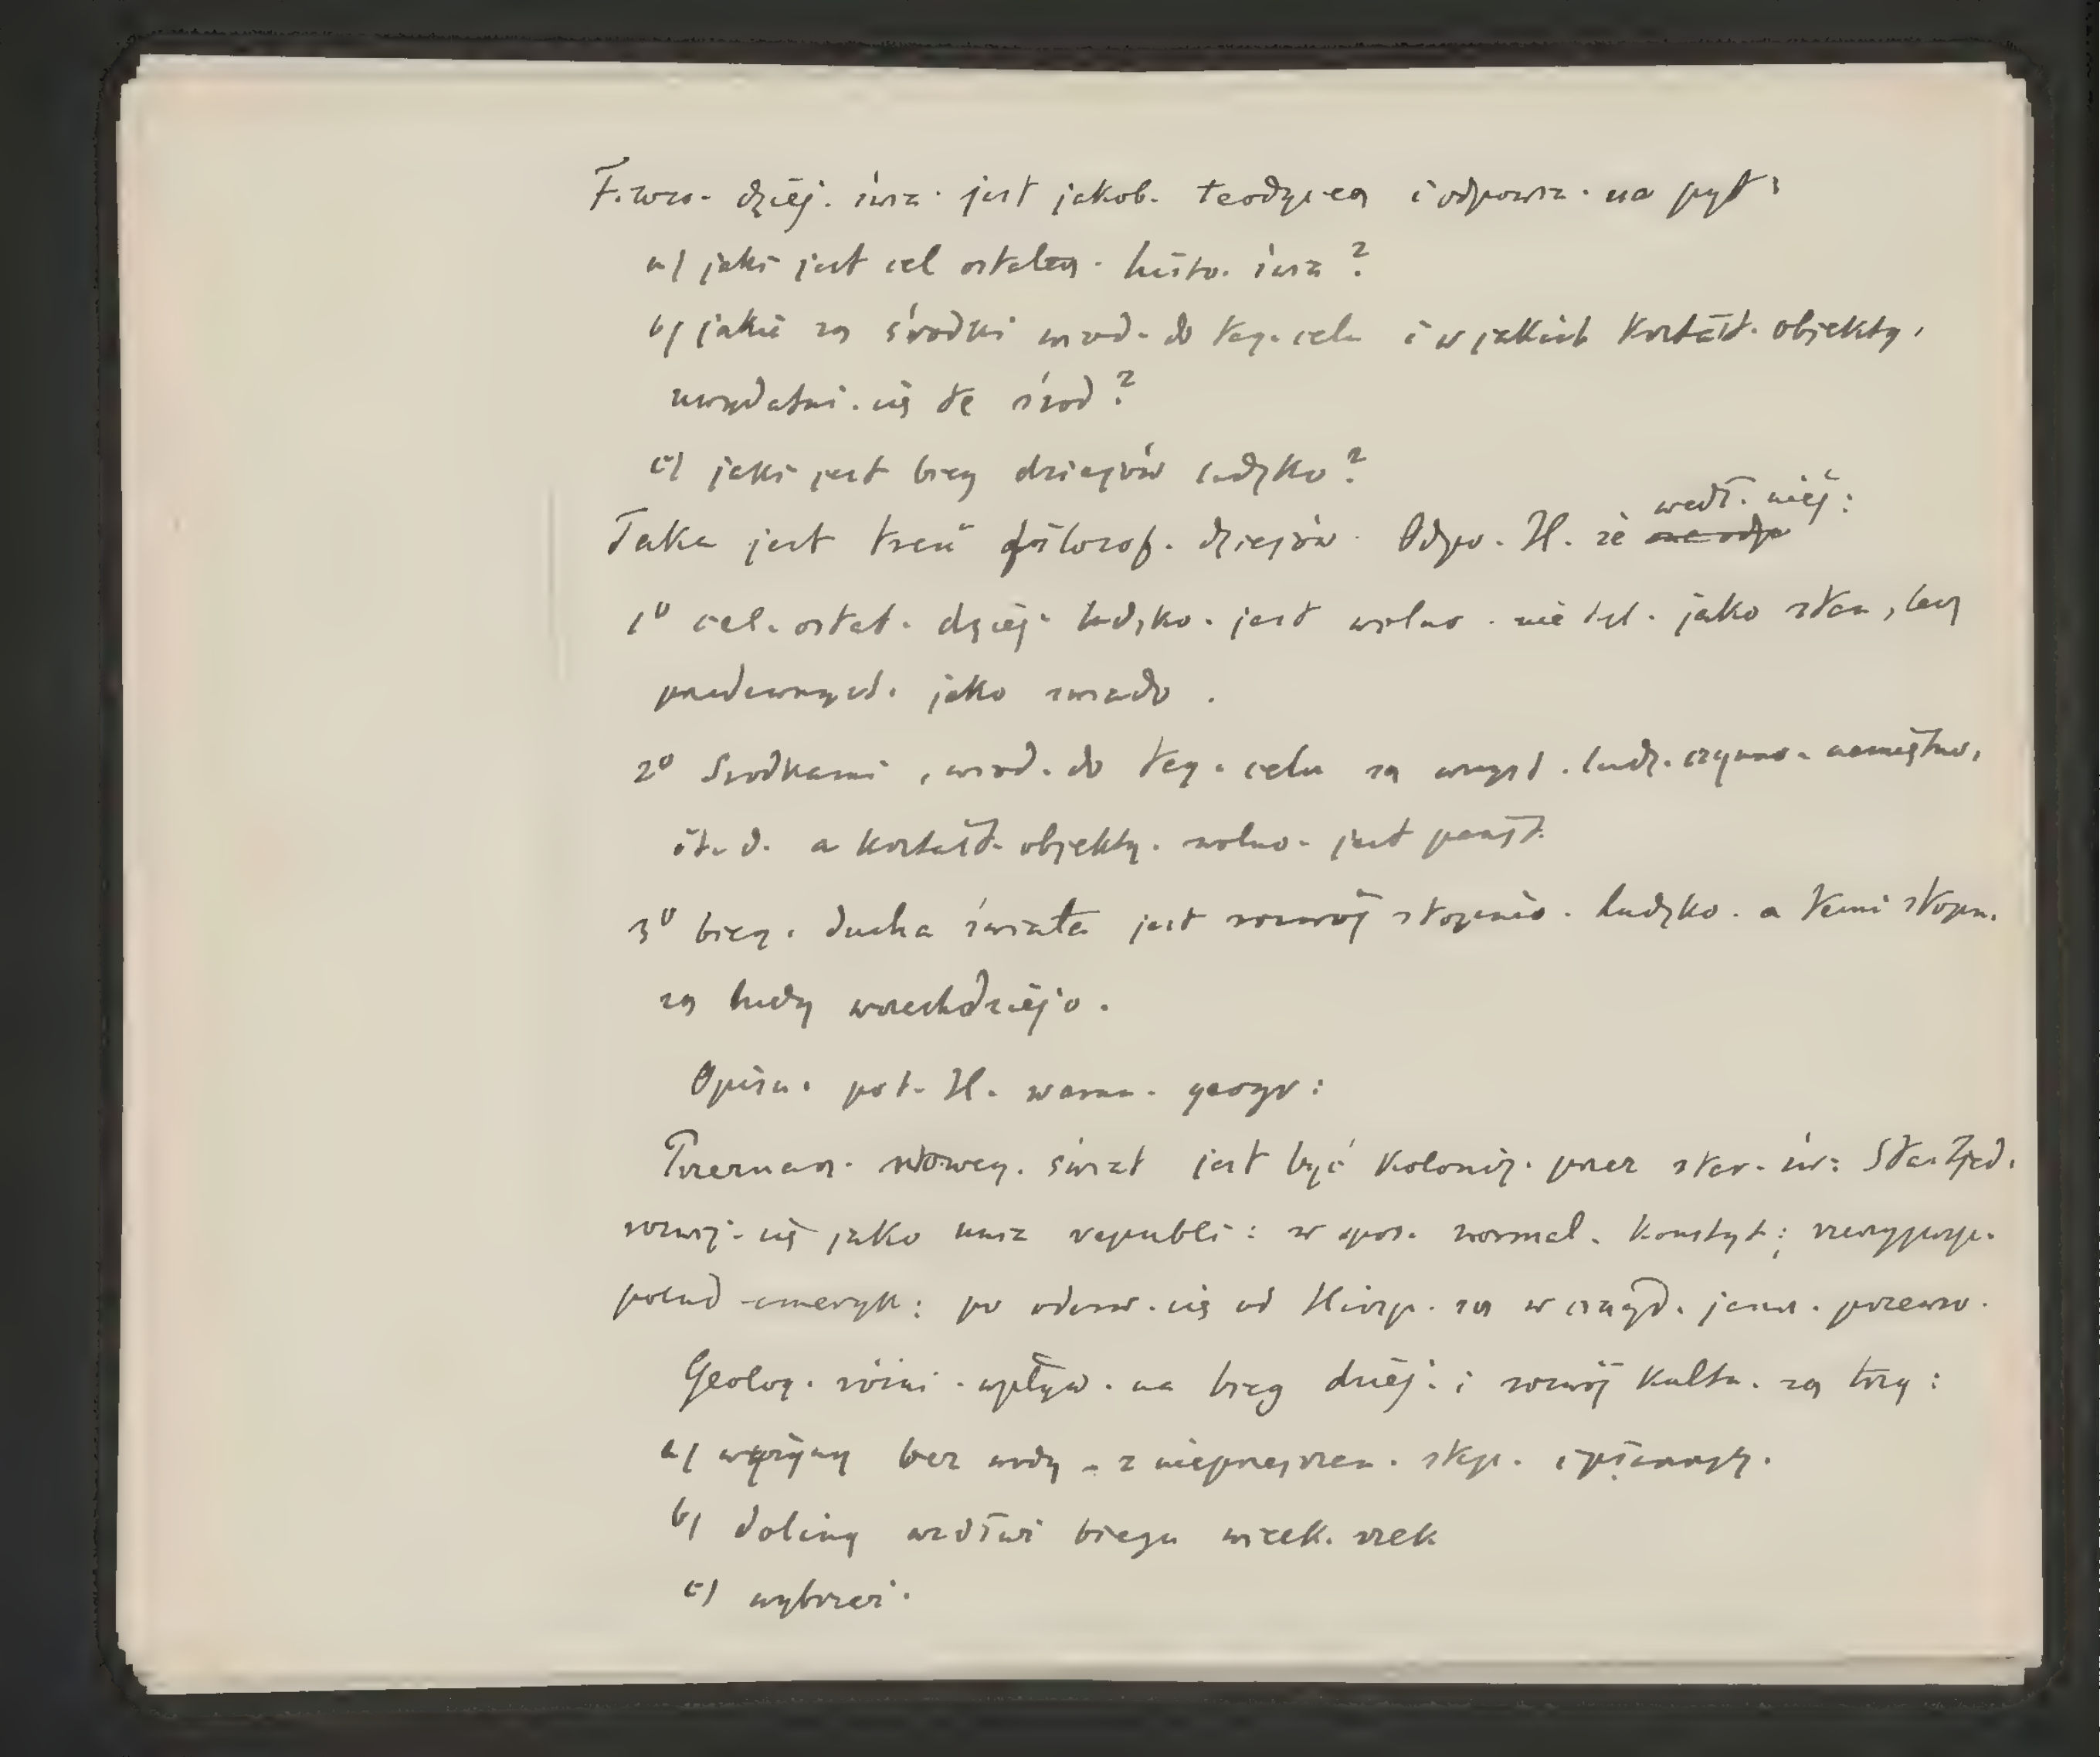 F. wzo. dziej. świa. jest jakob. teodyceą i odpowia. na pyt:
a) jaki jest cel ostatecz. histo. świa?
b) jakie są środki wiod. do teg. celu i w jakich kształt. objekty.
uwydatni. się te środ?
c) jaki jest bieg dziejów ludzko?
Taka jest treść filozof. dziejów. Odpo. H. że wedł. niej:
1⁰ cel. ostat. dziej. ludzko. jest wolno. nie tyl. jako stan, lecz
przedewszyst. jako świado.
2⁰ Środkami, wiod. do teg. celu są wszyst. ludz. czynno. namiętno.
it. d. a kształt. objekty. wolno. jest państ.
3⁰ bieg. ducha świata jest rozwój stopnio. ludzko. a temi stopn.
są ludy wszechdziejo.
Opisu. pot. H. waru. geogr:
Przeznacz. Noweg. świat jest być koloniz. przez star. św: Sta. Zjed.
rozwij. się jako unia republi: w spos. normal. konstyt; rzeczyposp.
połud-ameryk: po oderw. się od Hiszp. są w ciągł. przewro.
Geolog. różni. wpływ. na bieg dziej. i rozwój kultu. są trzy:
a) wyżyny bez wody - z nieprzejrzan. step. i płaszczyz.
b) doliny wzdłuż biegu wielk. rzek
c) wybrzeż.